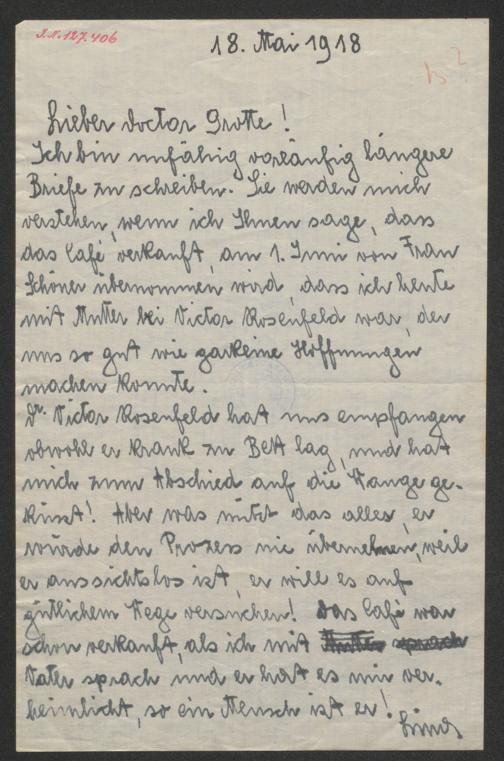 J.N. 127.406
18. Mai 1918
Lieber Doctor Grotte!
Ich bin unfähig vorläufig längere
Briefe zu schreiben. Sie werden mich
verstehen, wenn ich Ihnen sage, dass
das Café verkauft, am 1. Juni von Frau
Schöner übernommen wird, dass ich heute
mit Mutter bei Victor Rosenfeld war, der
uns so gut wie garkeine Hoffnungen
machen konnte.
Dr. Victor Rosenfeld hat uns empfangen
obwohl er krank zu Bett lag, und hat
mich zum Abschied auf die Wange ge-
küsst! Aber was nützt das alles, er
würde den Prozess nie übernehmen, weil
er aussichtslos ist, er will es auf
gütlichem Wege versuchen! Das Café war
schon verkauft, als ich mit Mutter sprach
Vater sprach und er hat es mir ver-
heimlicht, so ein Mensch ist er!